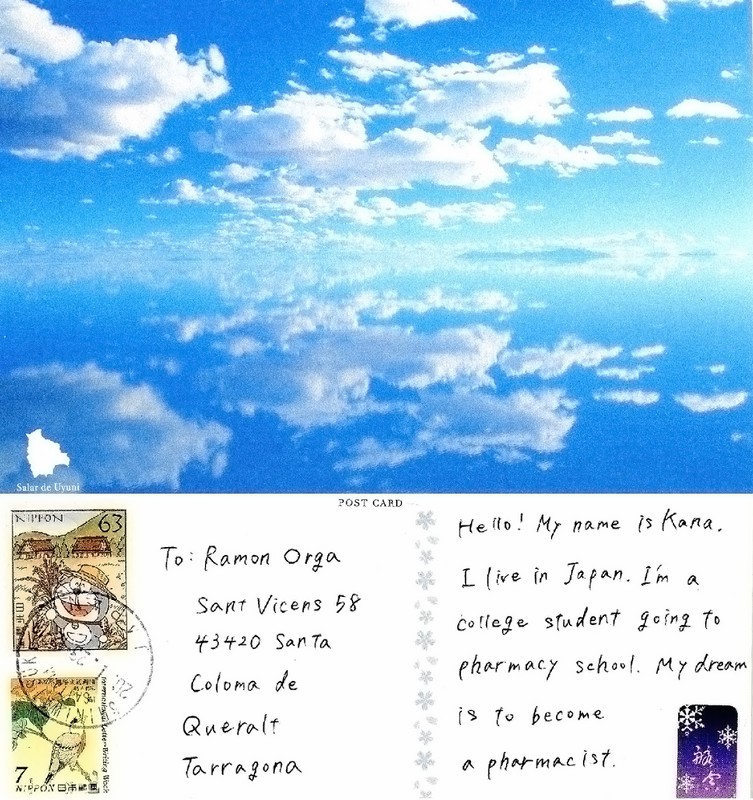 Salar de Uyuni
POST CARD
NIPPON 63
To: Ramon Orga
Sant Vicens 58
43420 Santa
Coloma de
Queralt
Tarragona
7
NIPPON 日本郵便
Hello! My name is Kana.
I live in Japan. I'm a
college student going to
pharmacy school. My dream
is to become
a pharmacist.